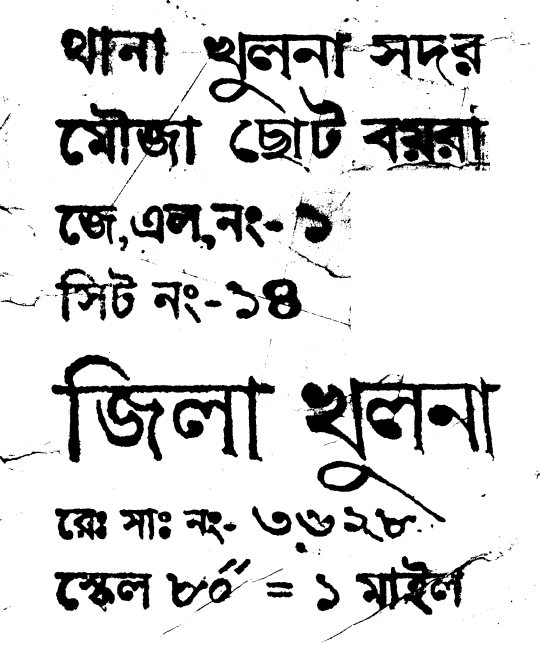 থানা খুলনা সদর
মৌজা ছোট বয়রা
জে,এল,নং- ১
সিট নং-১৪
জিলা খুলনা
রেঃ সাঃ নং- ৩৬২৮
স্কেল ৮০″ = ১ মাইল